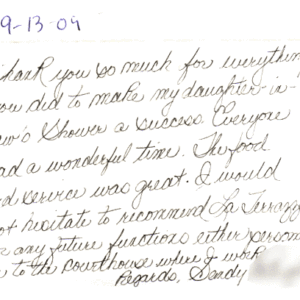 9-13-09
Thank you so much for everythin
you did to make my daughter-in-
law's Shower a success. Everyone
had a wonderful time. The food
and service was great. I would
not hesitate to recommend La Terrazz
for any future functions either person
or to the courthouse where I work
Regards, Sandy